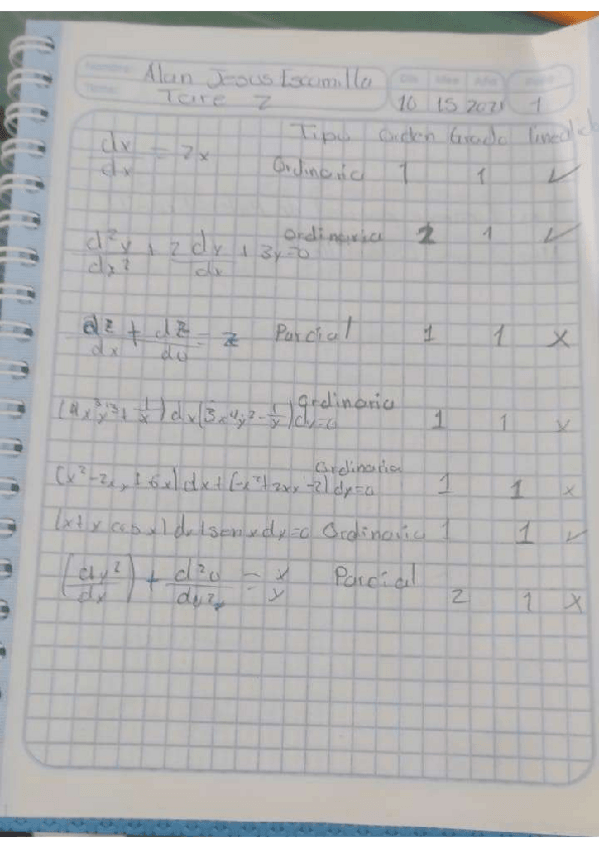 Alan Jesus Escamilla
Tarea 2 10 15 2021 1
Tipo Orden Grado lineal
dy/dx = 2x Ordinaria 1 1 ✓
d²y/dx² + 2 dy/dx + 3y=0 ordinaria 2 1 ✓
dz/dx + dz/dy = z Parcial 1 1 X
(4x³y³+ 1/x) dx (3x⁴y²- 1/y) dy=0 Ordinaria 1 1
dx+ dy=0 Ordinaria 1 1 x
(x+y cos x) dx+senxdy=0 Ordinaria 1 1 ✓
+ = x/y Parcial 2 1 X